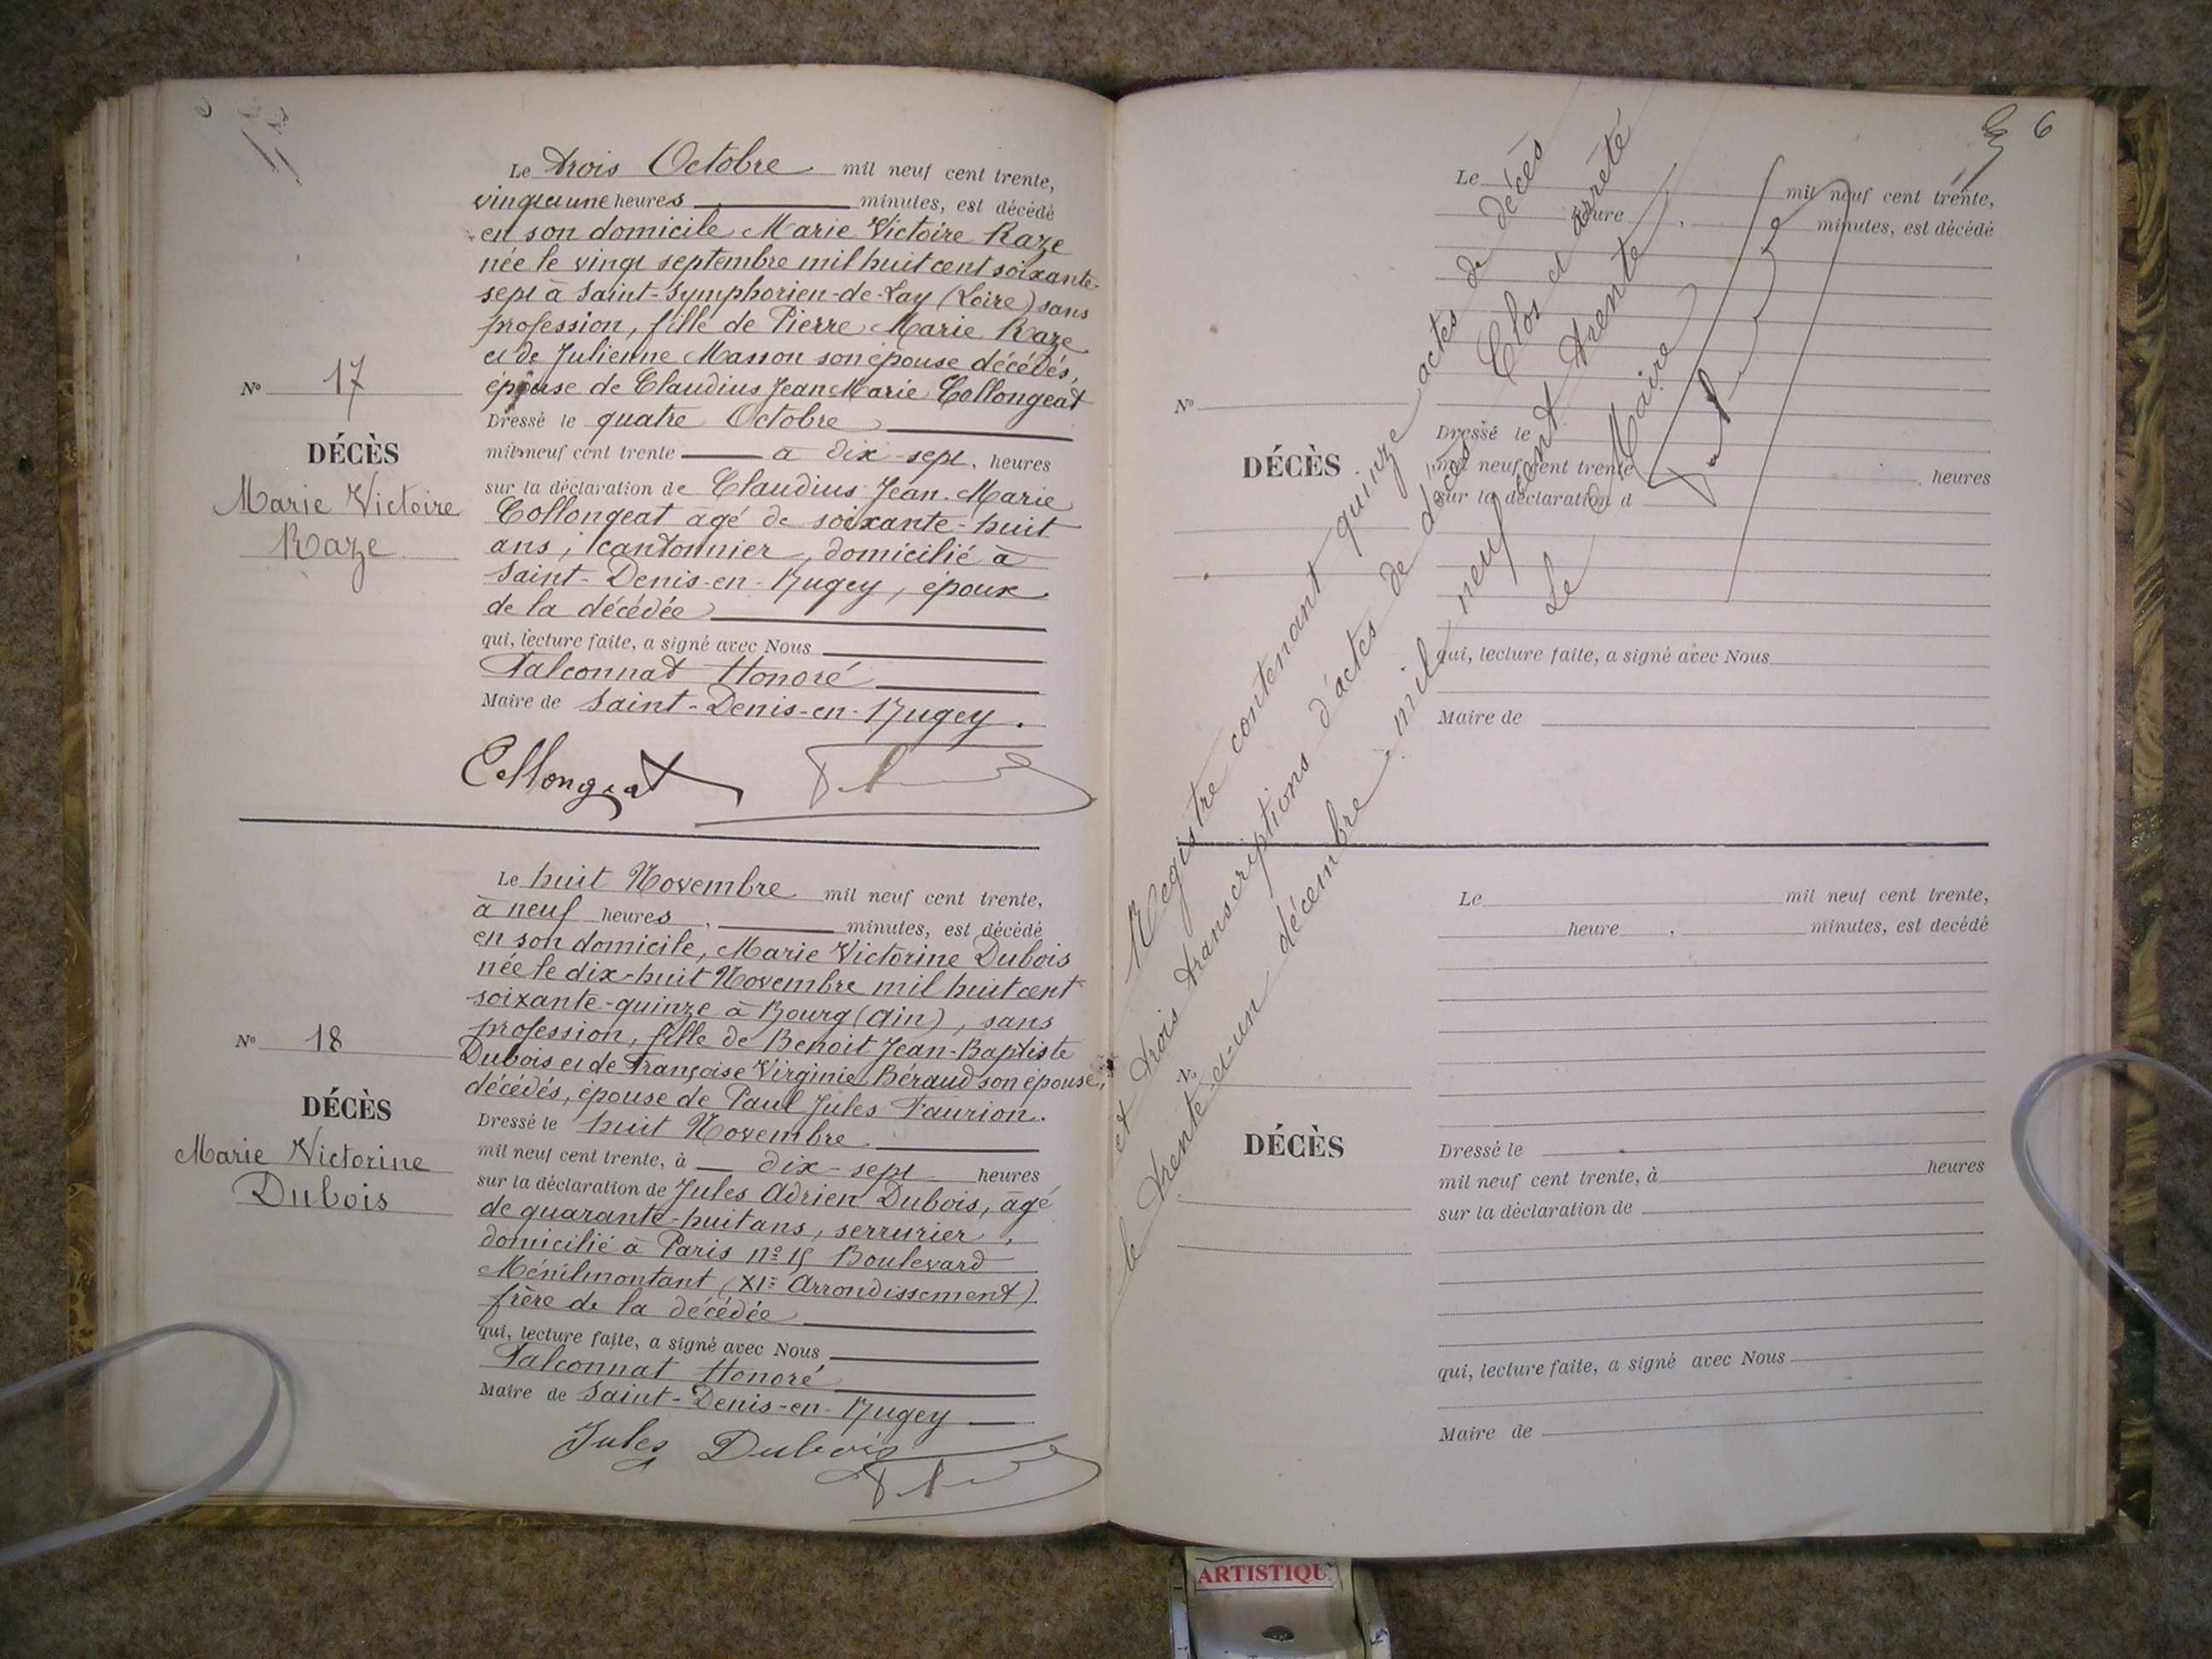 Le trois Octobre mil neuf cent trente,
vingt une heures minutes, est décédé
en son domicile Marie Victoire Raze
née le vingt septembre mil huit cent soixante-
sept à Saint-Symphorien-de-Lay (Loire) sans
profession, fille de Pierre Marie Raze
et de Julienne Masson son épouse décédés,
épouse de Claudius Jean Marie Collongeat
Dressé le quatre Octobre
mil neuf cent trente à dix-sept, heures
sur la déclaration de Claudius Jean Marie
Collongeat agé de soixante-huit
ans, cantonnier, domicilié à
Saint-Denis-en-Bugey, époux
de la décédée
qui, lecture faite, a signé avec Nous
Falconnat Honoré
Maire de Saint-Denis-en-Bugey.
Collongeat
N° 17
DÉCÈS
Marie Victoire
Raze
Le huit Novembre mil neuf cent trente,
à neuf heures, minutes, est décédé
en son domicile, Marie Victorine Dubois
née le dix-huit Novembre mil huit cent
soixante-quinze à Bourg (Ain), sans
profession, fille de Benoit Jean-Baptiste
Dubois et de Françoise Virginie Béraud son épouse,
décédés, épouse de Paul Jules Faurion.
Dressé le huit Novembre
mil neuf cent trente, à dix-sept heures
sur la déclaration de Jules Adrien Dubois, agé
de quarante-huit ans, serrurier,
domicilié à Paris n° 15 Boulevard
Ménilmontant (XIe Arrondissement)
frère de la décédée
qui, lecture faite, a signé avec Nous
Falconnat Honoré
Maire de Saint-Denis-en-Bugey
Jules Dubois
N° 18
DÉCÈS
Marie Victorine
Dubois
6
Le mil neuf cent trente,
heure , minutes, est décédé
N°
DÉCÈS
Dressé le
mil neuf cent trente heures
sur la déclaration d
qui, lecture faite, a signé avec Nous
Maire de
Registre contenant quinze actes de décès
et trois transcriptions d'actes de décès Clos et arrêté
le trente-et-un décembre mil neuf cent trente
Le Maire
Le mil neuf cent trente,
heure , minutes, est decédé
N°
DÉCÈS
Dressé le
mil neuf cent trente, à heures
sur la déclaration de
qui, lecture faite, a signé avec Nous
Maire de
ARTISTIQU